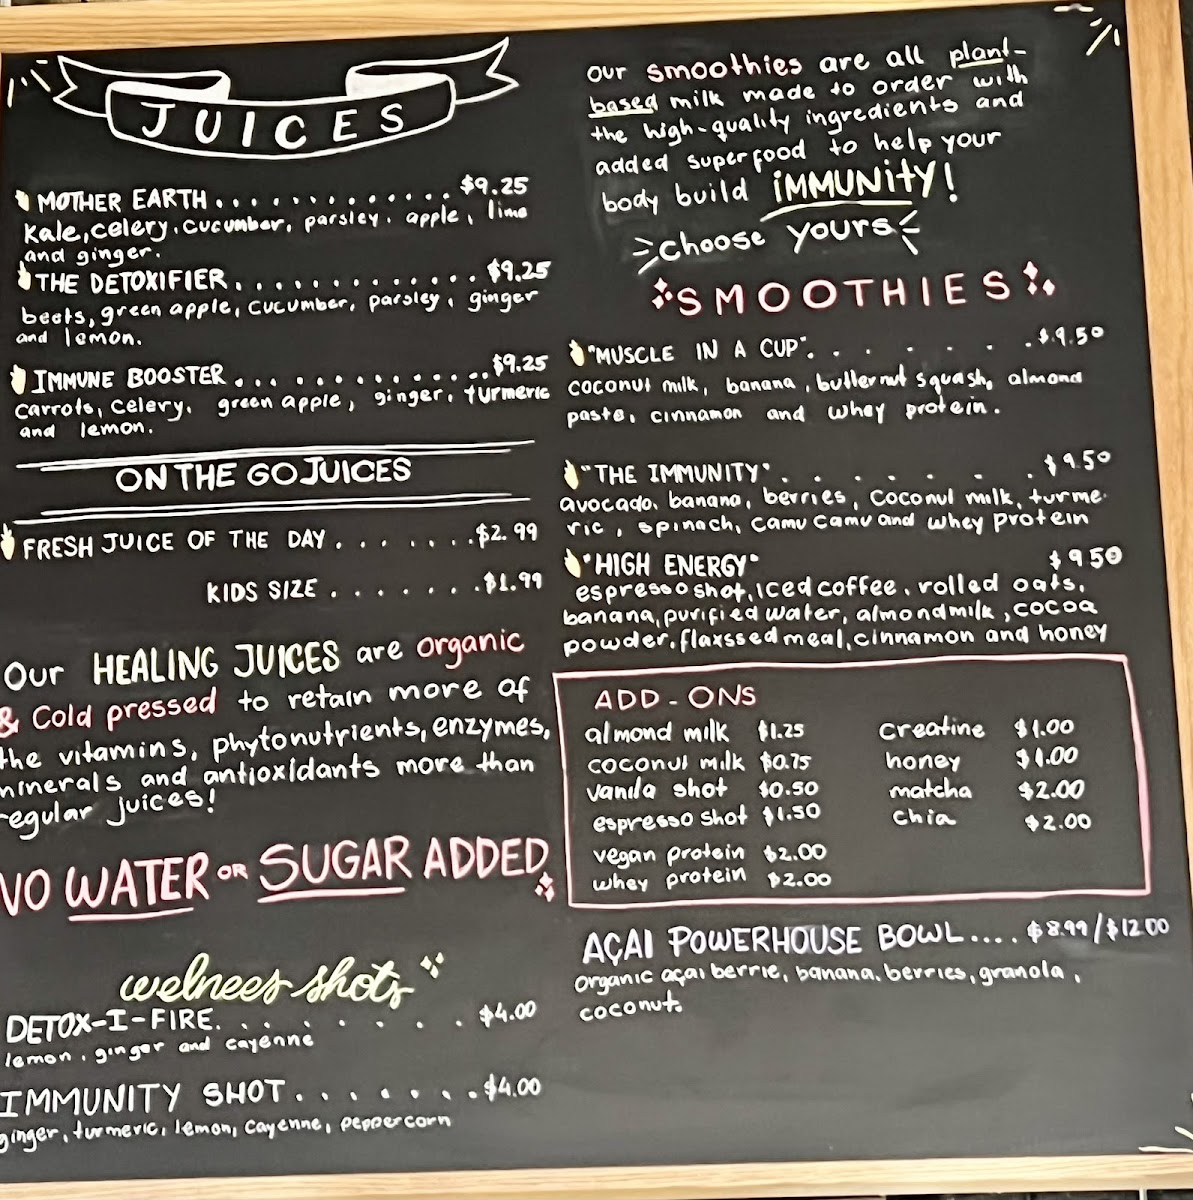 JUICES
MOTHER EARTH............. $9.25
Kale, celery, cucumber, parsley, apple, lime
and ginger.
THE DETOXIFIER............. $9.25
beets, green apple, cucumber, parsley, ginger
and lemon.
IMMUNE BOOSTER............. $9.25
carrots, celery, green apple, ginger, turmeric
and lemon.
ON THE GO JUICES
FRESH JUICE OF THE DAY....... $2.99
KIDS SIZE....... $1.99
Our HEALING JUICES are organic
& Cold pressed to retain more of
the vitamins, phytonutrients, enzymes,
minerals and antioxidants more than
regular juices!
NO WATER OR SUGAR ADDED
welnees shots
DETOX-I-FIRE........ $4.00
lemon, ginger and cayenne
IMMUNITY SHOT....... $4.00
ginger, turmeric, lemon, cayenne, peppercorn
our smoothies are all plant-
based milk made to order with
the high-quality ingredients and
added superfood to help your
body build iMMUNity!
choose yours
SMOOTHIES
"MUSCLE IN A CUP"....... $9.50
coconut milk, banana, butternut squash, almond
paste, cinnamon and whey protein.
"THE IMMUNITY"........ $9.50
avocado, banana, berries, coconut milk, turme-
ric, spinach, camu camu and whey protein
"HIGH ENERGY" $9.50
espresso shot, iced coffee, rolled oats,
banana, purified water, almond milk, cocoa
powder, flaxssed meal, cinnamon and honey
ADD-ONS
almond milk $1.25
coconut milk $0.75
vanila shot $0.50
espresso shot $1.50
vegan protein $2.00
whey protein $2.00
creatine $1.00
honey $1.00
matcha $2.00
chia $2.00
AÇAI POWERHOUSE BOWL.... $8.99/$12.00
organic açai berrie, banana, berries, granola,
coconut.